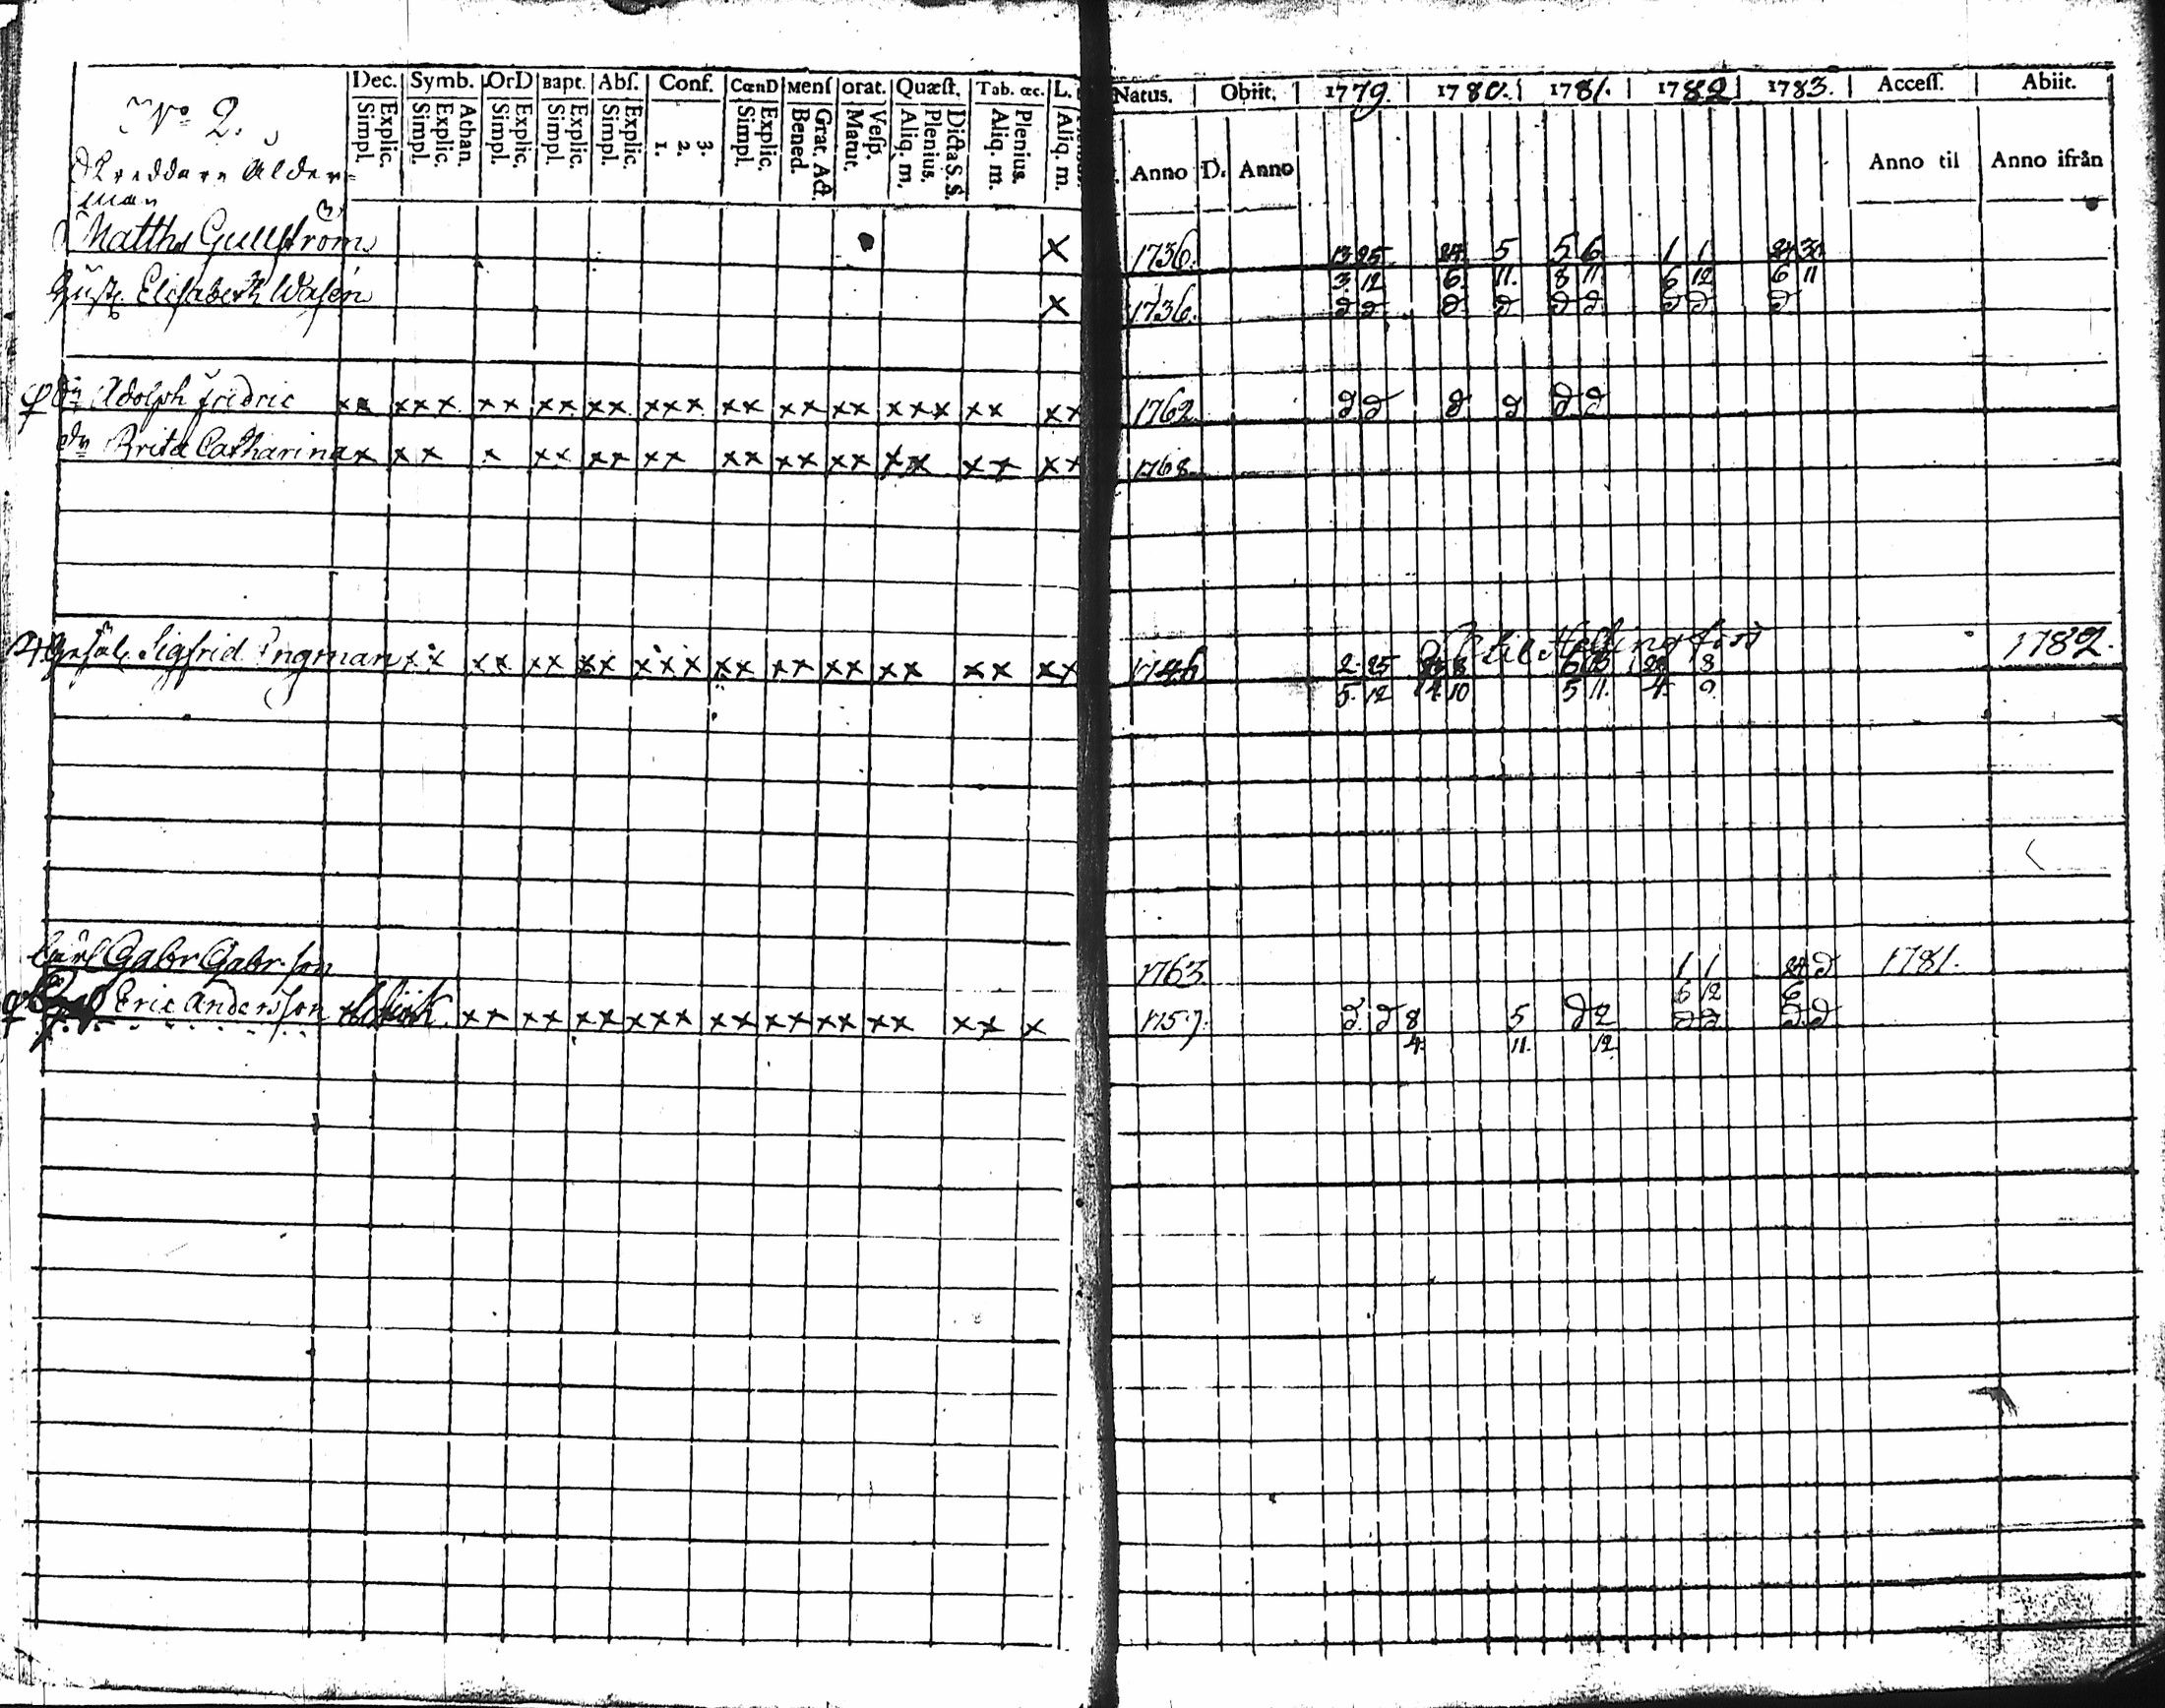 Dec. Symb. OrD Bapt. Abſ. Conf. CœnD Menſ orat. Quæſt. Tab. œc. L. Natus. Obiit. 1779. 1780. 1781. 1782 1783. Acceſſ. Abiit.
Explic. Simpl. Athan. Explic. Simpl. Explic. Simpl. Explic. Simpl. Explic. Simpl. 1. 2. 3. Explic. Simpl. Grat. Act. Bened. Veſp. Matut. Dicta S. S. Plenius. Aliq. m. Plenius. Aliq. m. Aliq. m. Anno D. Anno Anno til Anno ifrån
No 2.
Skreddare Alder=
man
Matths Gullström x 1736. 13 25 24 5 5 6 1 1 24 30
3 12 6. 11. 8 11 6 12 6 11
Hust. Elisabeth Wasén x 1736. d d d d d d d d d
dr Adolph Fridric xx xxx xx xx xx xxx xx xx xx xxx xx xx 1762 d d d d d d
dr Brita Catharina x xx x xx xx xx xx xx xx xx xx xx 1768
til Helsingfors 1782.
Gesäl. Sigfrid Engman xx xx xx xx xxx xx xx xx xx xx xx 2 25 8 8
5. 12 4 10 5 11. 4 9
Carl Gabr Gabr.son 1763. 1 1 24 d 1781.
6 12 6
Eric Andersson xx xx xx xxx xx xx xx xx xx x 1757. d. d 8 5 d 2 d d d d
4. 11. 12